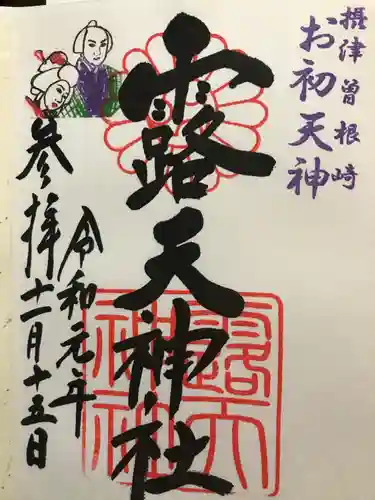 摂津曽根崎
お初天神
露天神社
令和元年
十一月十五日
参拝
露天
神社